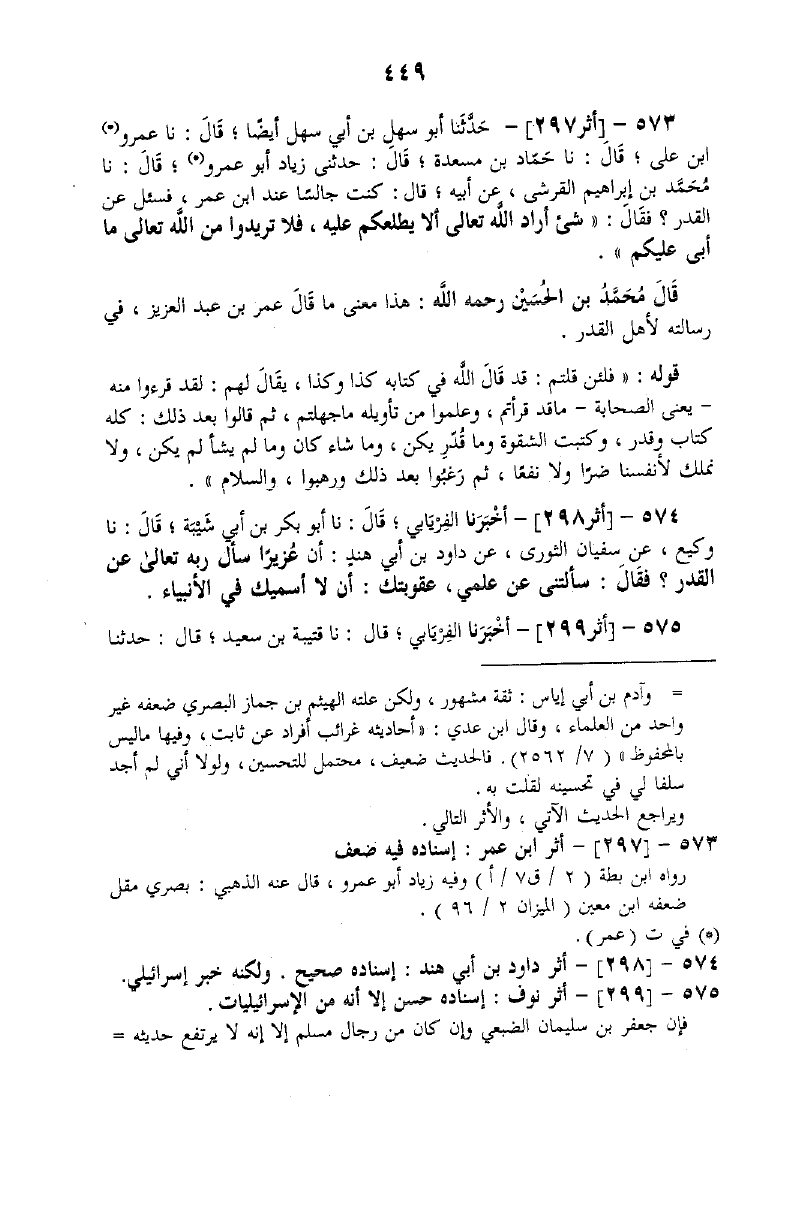 ٤٤٩
٥٧٣ - [أثر٢٩٧] - حَدَّثَنا أبو سهل بن أبي سهل أيضًا ؛ قَالَ : نا عمرو(*)
ابن على ؛ قَالَ : نا حَمَّاد بن مسعدة ؛ قَالَ : حدثنى زياد أبو عمرو(*) ؛ قَالَ : نا
مُحَمَّد بن إبراهيم القرشى ، عن أبيه ؛ قال : كنت جالسًا عند ابن عمر ، فسئل عن
القدر ؟ فقَالَ : « شئ أراد اللَّه تعالى ألا يطلعكم عليه ، فلا تريدوا من اللَّه تعالى ما
أبى عليكم » .
قَالَ مُحَمَّدُ بن الحُسَيْن رحمه اللَّه : هذا معنى ما قَالَ عمر بن عبد العزيز ، في
رسالته لأهل القدر .
قوله : « فلئن قلتم : قد قَالَ اللَّه في كتابه كذا وكذا ، يقَالَ لهم : لقد قرءوا منه
- يعنى الصحابة - ماقد قرأتم ، وعلموا من تأويله ماجهلتم ، ثم قالوا بعد ذلك : كله
كتاب وقدر ، وكتبت الشقوة وما قُدّر يكن ، وما شاء كان وما لم يشأ لم يكن ، ولا
نملك لأنفسنا ضرًا ولا نفعًا ، ثم رَغبُوا بعد ذلك ورهبوا ، والسلام » .
٥٧٤ - [أثر٢٩٨] - أَخْبَرَنا الفِرْيَابي ؛ قَالَ : نا أبو بكر بن أبي شَيْبَة ؛ قَالَ : نا
وكيع ، عن سفيان الثورى ، عن داود بن أبي هندٍ : أن عُزيرًا سأل ربه تعالىٰ عن
القدر ؟ فقَالَ : سألتنى عن علمي ، عقوبتك : أن لا أسميك في الأنبياء .
٥٧٥ - [أثر٢٩٩] - أَخْبَرَنا الفِرْيَابي ؛ قال : نا قتيبة بن سعيد ؛ قال : حدثنا
= وآدم بن أبي إياس : ثقة مشهور ، ولكن علته الهيثم بن جماز البصري ضعفه غير
واحد من العلماء ، وقال ابن عدي : «أحاديثه غرائب أفراد عن ثابت ، وفيها ماليس
بالمحفوظ » ( ٧/ ٢٥٦٢). فالحديث ضعيف ، محتمل للتحسين ، ولولا أني لم أجد
سلفا لي في تحسينه لقلت به .
ويراجع الحديث الآتي ، والأثر التالي .
٥٧٣ - [٢٩٧] - أثر ابن عمر : إسناده فيه ضعف
رواه ابن بطة ( ٢ / ق٧ / أ ) وفيه زياد أبو عمرو ، قال عنه الذهبي : بصري مقل
ضعفه ابن معين ( الميزان ٢ / ٩٦ ) .
(*) في ت (عمر) .
٥٧٤ - [٢٩٨] - أثر داود بن أبي هند : إسناده صحيح . ولكنه خبر إسرائيلي.
٥٧٥ - [٢٩٩] - أثر نوف : إسناده حسن إلا أنه من الإسرائيليات .
فإن جعفر بن سليمان الضبعي وإن كان من رجال مسلم إلا إنه لا يرتفع حديثه =